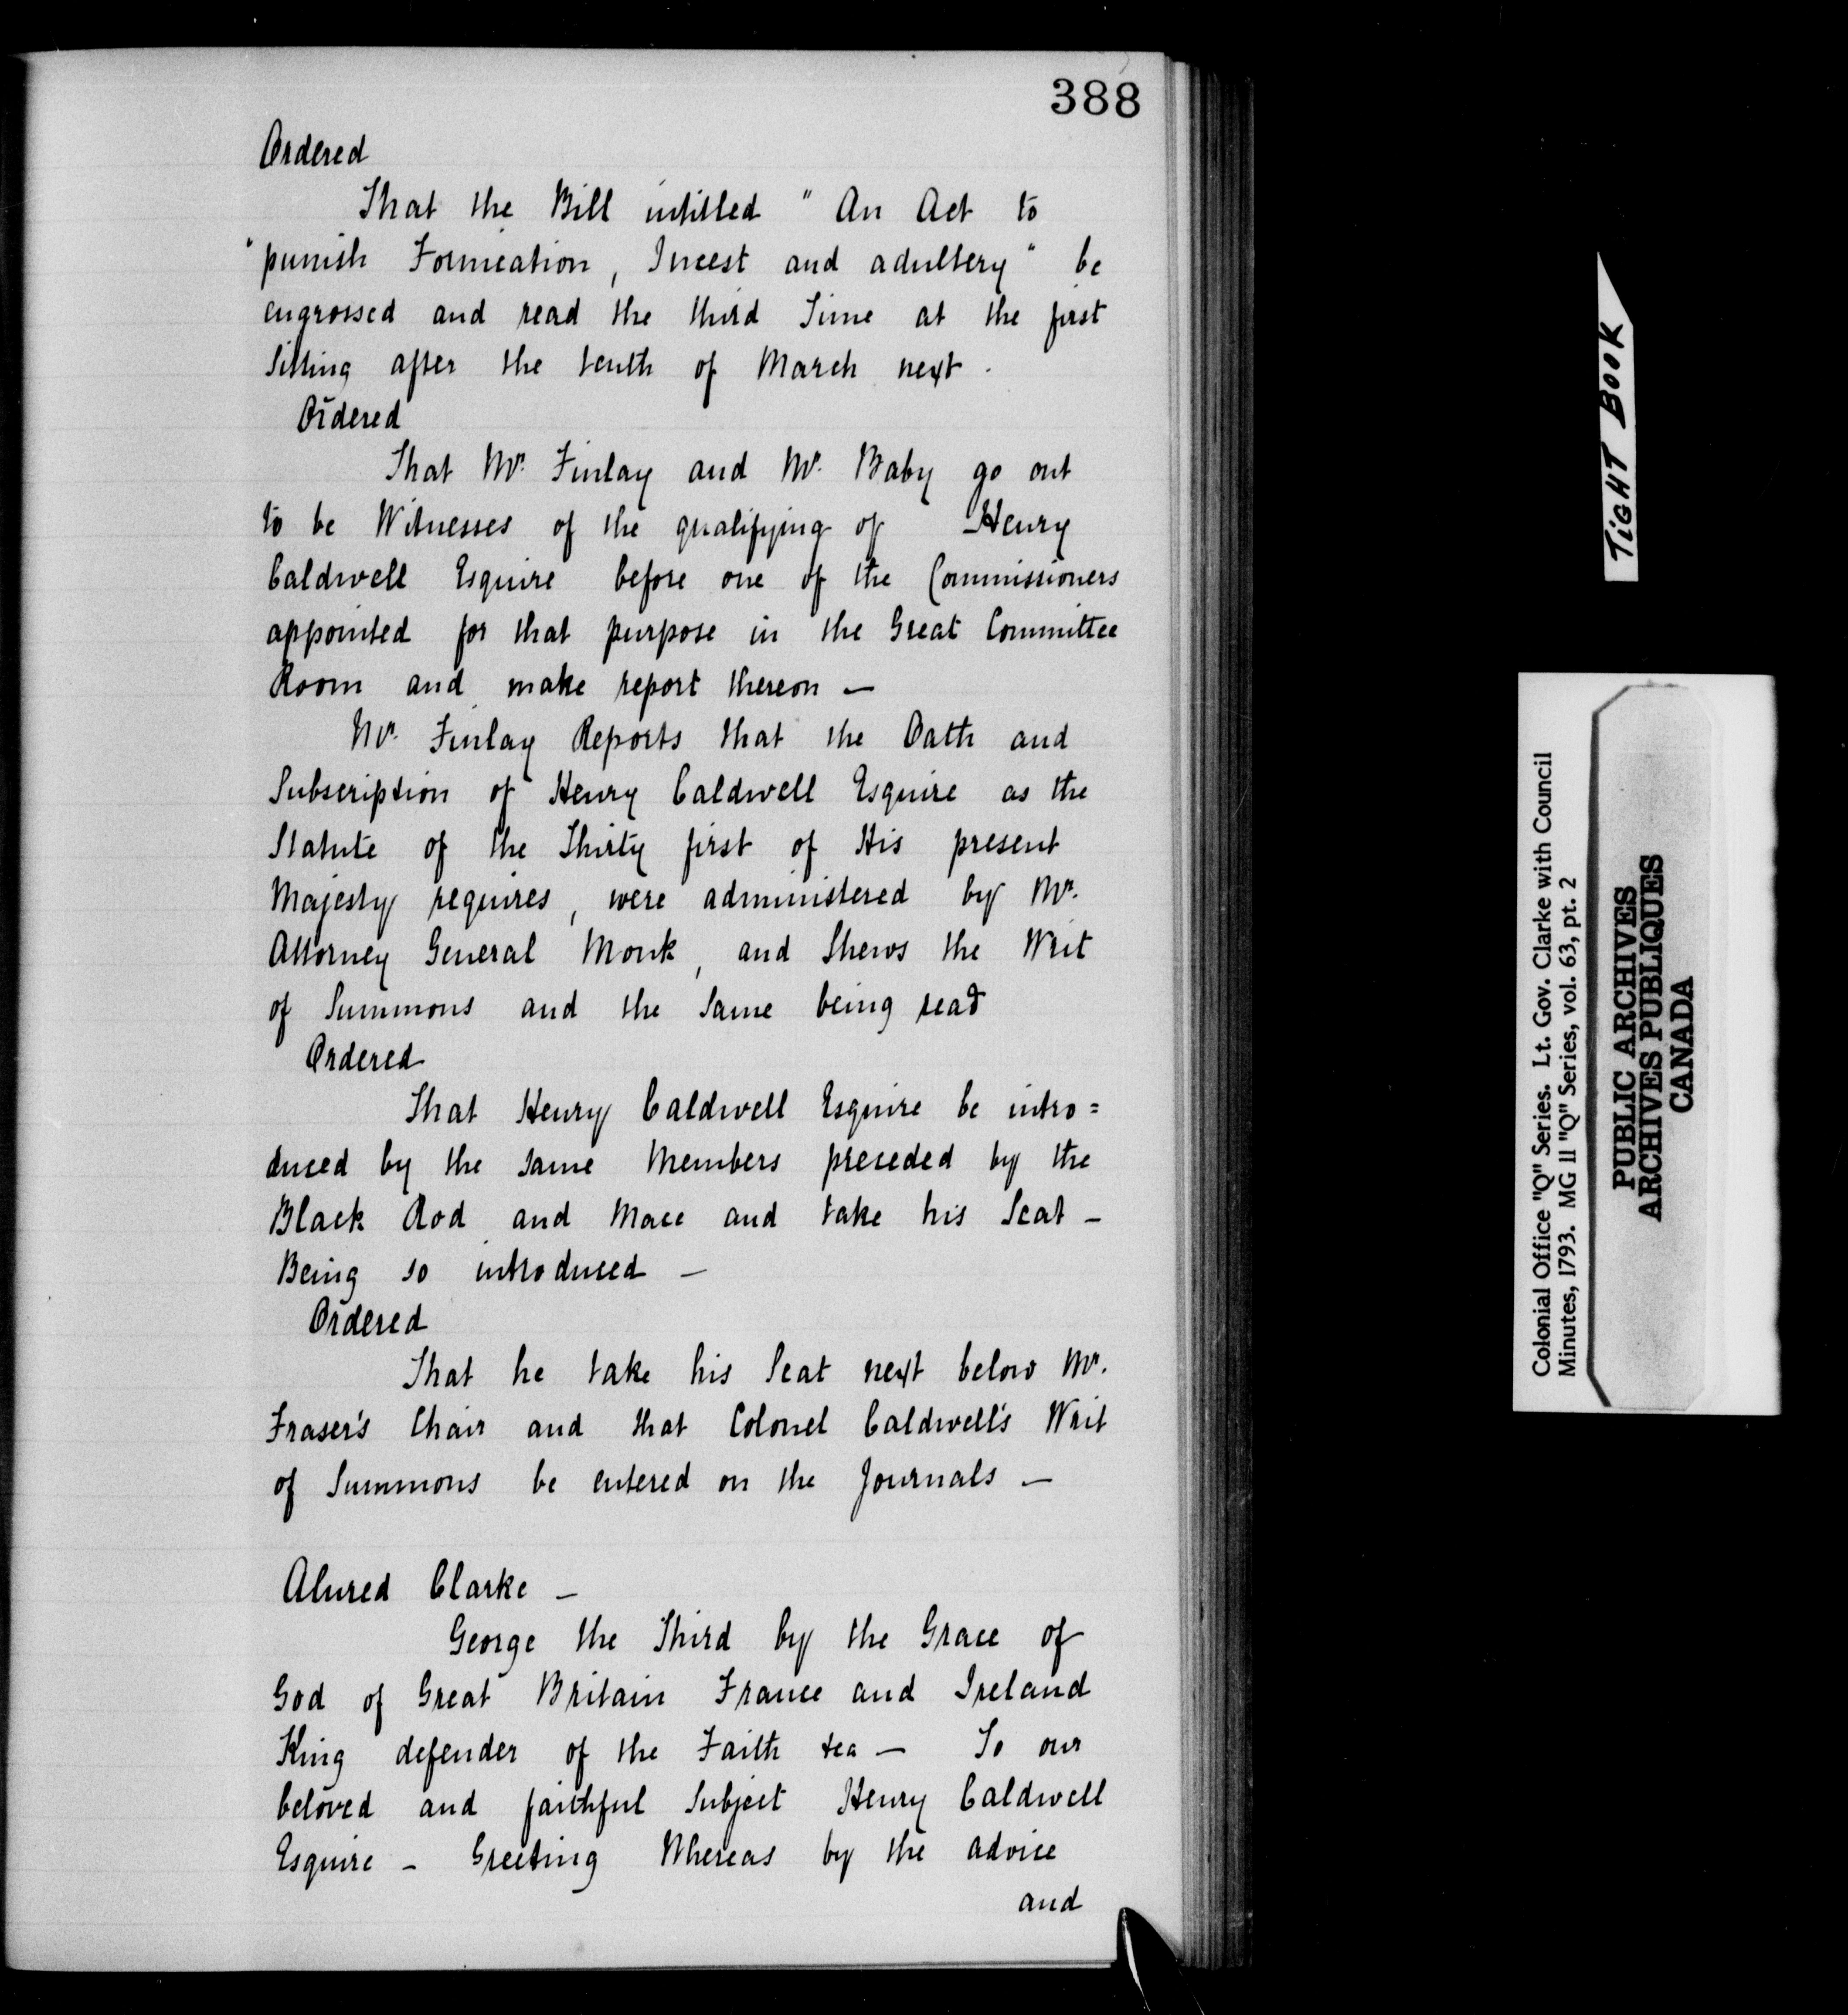 388
Ordered
That the Bill intitled " An Act to
" punish Fornication, Incest and adultery " be
engrossed and read the third Time at the first
Sitting after the tenth of March next.
Ordered
That Mr. Finlay and Mr. Baby go out
to be Witnesses of the qualifying of Henry
Caldwell Esquire before one of the Commissioners
appointed for that purpose in the Great Committee
Room and make report thereon —
Mr. Finlay Reports that the Oath and
Subscription of Henry Caldwell Esquire as the
Statute of the Thirty first of His present
Majesty requires, were administered by Mr.
Attorney General Monk, and Shews the Writ
of Summons and the Same being read
Ordered
That Henry Caldwell Esquire be intro=
duced by the same Members preceded by the
Black Rod and Mace and take his Seat —
Being so introduced —
Ordered
That he take his Seat next below Mr.
Fraser's Chair and that Colonel Caldwell's Writ
of Summons be entered on the Journals —
Alured Clarke —
George the Third by the Grace of
God of Great Britain France and Ireland
King defender of the Faith &ca — To our
beloved and faithful Subject Henry Caldwell
Esquire — Greeting Whereas by the advice
and
TIGHT BOOK
Colonial Office "Q" Series. Lt. Gov. Clarke with Council
Minutes, 1793. MG 11 "Q" Series, vol. 63, pt. 2
PUBLIC ARCHIVES
ARCHIVES PUBLIQUES
CANADA